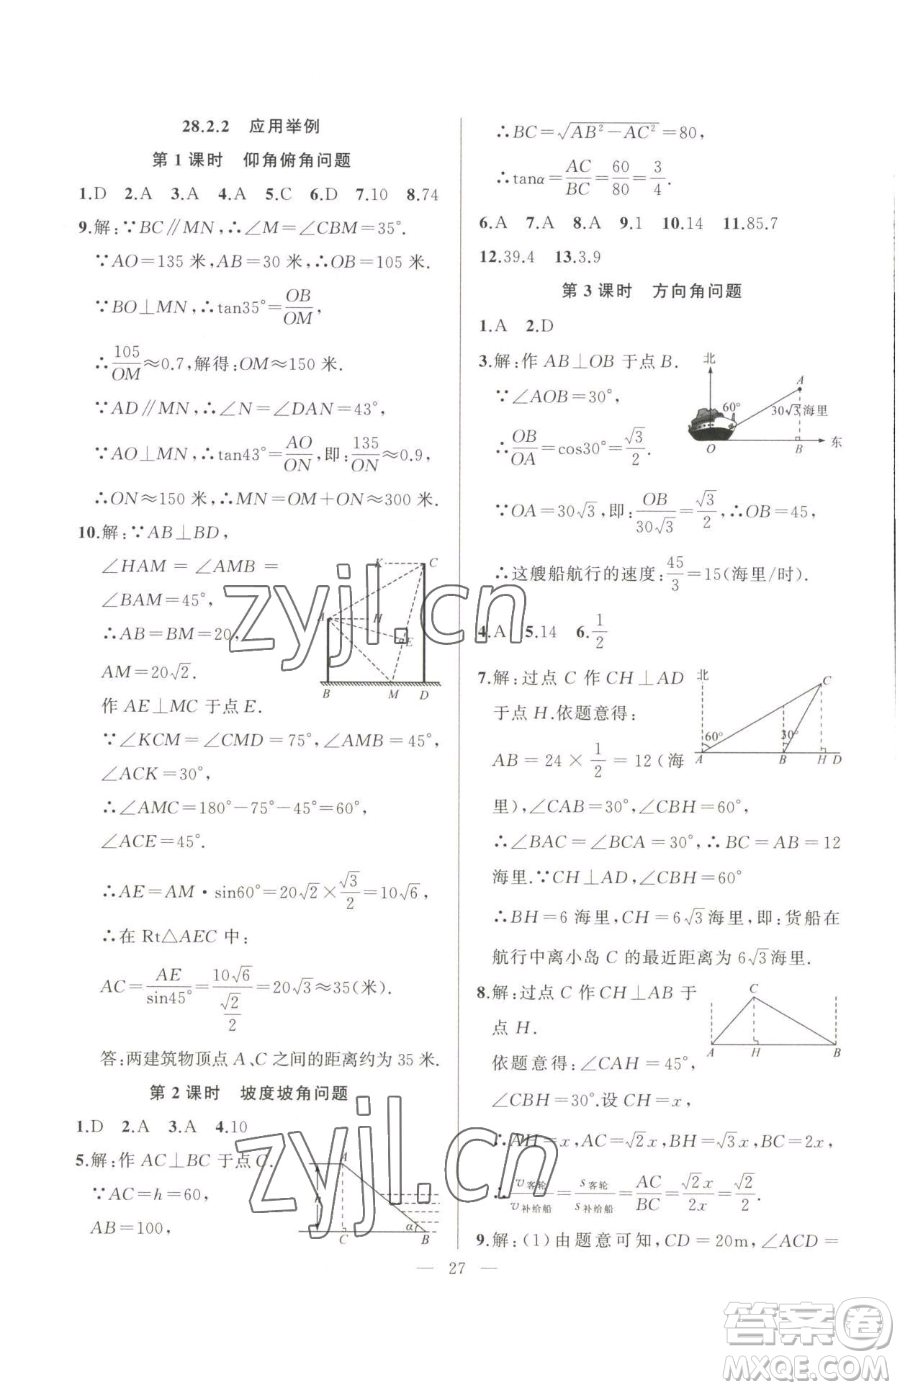 28.2.2　应用举例
第 1 课时　仰角俯角问题
1.D　2.A　3.A　4.A　5.C　6.D　7.10　8.74
9.解:∵BC∥MN,∴∠M=∠CBM=35°.
∵AO=135 米,AB=30 米,∴OB=105 米.
∵BO⊥MN,∴tan35°=OB/OM,
∴105/OM≈0.7,解得:OM≈150 米.
∵AD∥MN,∴∠N=∠DAN=43°,
∵AO⊥MN,∴tan43°=AO/ON,即:135/ON≈0.9,
∴ON≈150 米,∴MN=OM+ON≈300 米.
10.解:∵AB⊥BD,
∠HAM=∠AMB=
∠BAM=45°,
∴AB=BM=20,
AM=20√2.
作 AE⊥MC 于点 E.
∵∠KCM=∠CMD=75°,∠AMB=45°,
∠ACK=30°,
∴∠AMC=180°-75°-45°=60°,
∠ACE=45°.
∴AE=AM·sin60°=20√2×√3/2=10√6,
∴在 Rt△AEC 中:
AC=AE/sin45°=10√6/(√2/2)=20√3≈35(米).
答:两建筑物顶点 A、C 之间的距离约为 35 米.
K C A H E B M D
第 2 课时　坡度坡角问题
1.D　2.A　3.A　4.10
5.解:作 AC⊥BC 于点 C.
∵AC=h=60,
AB=100,
A h C α B
∴BC=√(AB²-AC²)=80,
∴tanα=AC/BC=60/80=3/4.
6.A　7.A　8.A　9.1　10.14　11.85.7
12.39.4　13.3.9
第 3 课时　方向角问题
1.A　2.D
3.解:作 AB⊥OB 于点 B.
∵∠AOB=30°,
∴OB/OA=cos30°=√3/2.
北 A 60° 30√3海里 O B 东
∵OA=30√3,即:OB/30√3=√3/2,∴OB=45,
∴这艘船航行的速度:45/3=15(海里/时).
4.A　5.14　6.1/2
7.解:过点 C 作 CH⊥AD
于点 H.依题意得:
AB=24×1/2=12(海
北 C 60° 30° A B H D
里),∠CAB=30°,∠CBH=60°
∴∠BAC=∠BCA=30°,∴BC=AB=12
海里.∵CH⊥AB,∠CBH=60°
∴BH=6 海里,CH=6√3海里,即:货船在
航行中离小岛 C 的最近距离为 6√3海里.
8.解:过点 C 作 CH⊥AB 于
点 H.
依题意得:∠CAH=45°,
∠CBH=30°.设 CH=x,
C A H B
∴AH=x,AC=√2x,BH=√3x,BC=2x,
∴v客轮/v补给船=s客轮/s补给船=AC/BC=√2x/2x=√2/2.
9.解:(1)由题意可知,CD=20m,∠ACD=
— 27 —
zyjl.cn
zyjl.cn
答案圈
MXQE.COM